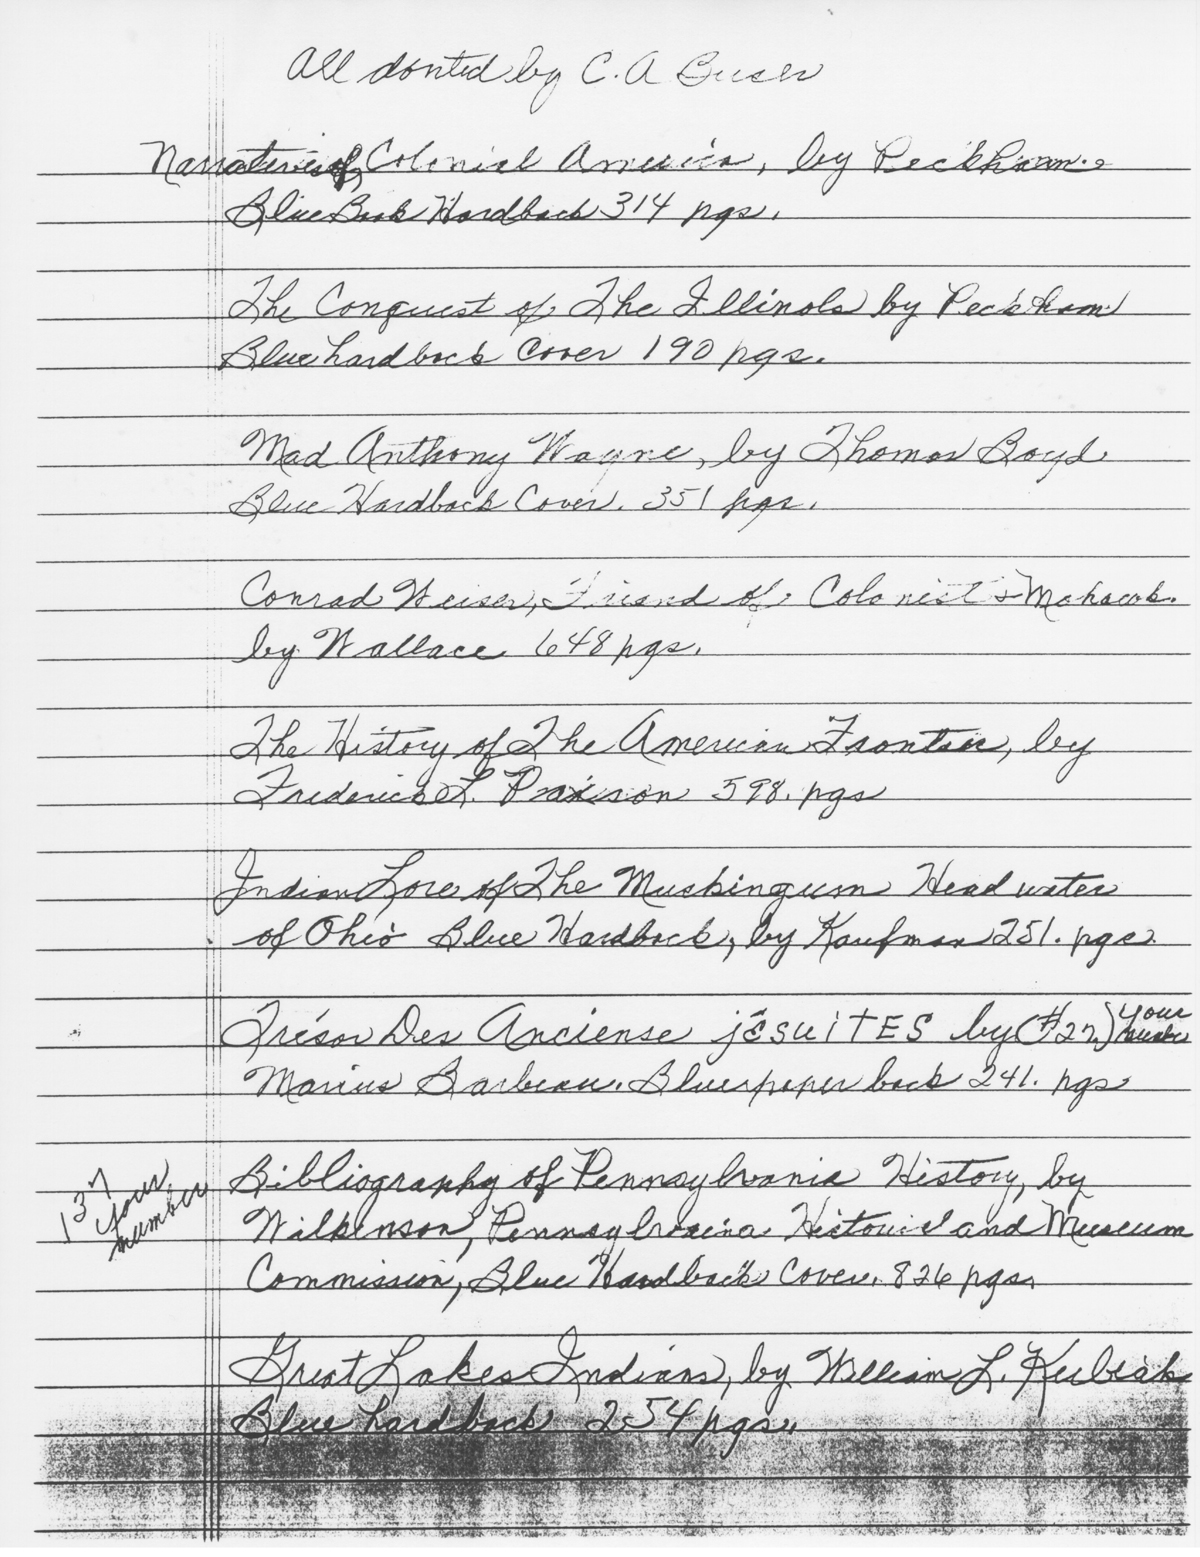 All donted by C. A Buser
Narratives of Colonial America, by Peckham.
Blue Book Hardback 314 pgs.
The Conquest of The Illinols by Peckham
Blue hardback Cover 190 pgs.
Mad Anthony Wayne, by Thomas Boyd
Blue Hardback Cover. 351 pgs.
Conrad Weiser, Friend of Colonist & Mohawk.
by Wallace 648 pgs.
The History of The American Frontier, by
Frederick L. Paxison 598. pgs
Indian Lore of The Muskingum Head water
of Ohio Blue Hardback, by Kaufman 251. pgs.
Trésor Des Anciense jÉSUiTES by (#27) your number
Marius Barbeau. Blue paper back 241. pgs
137 your number
Bibliography of Pennsylvania History, by
Wilkinson, Pennsylvaina Historical and Museum
Commission, Blue Hardback Cover. 826 pgs.
Great Lakes Indians, by William L. Kubiak
Blue hardback 254 pgs.